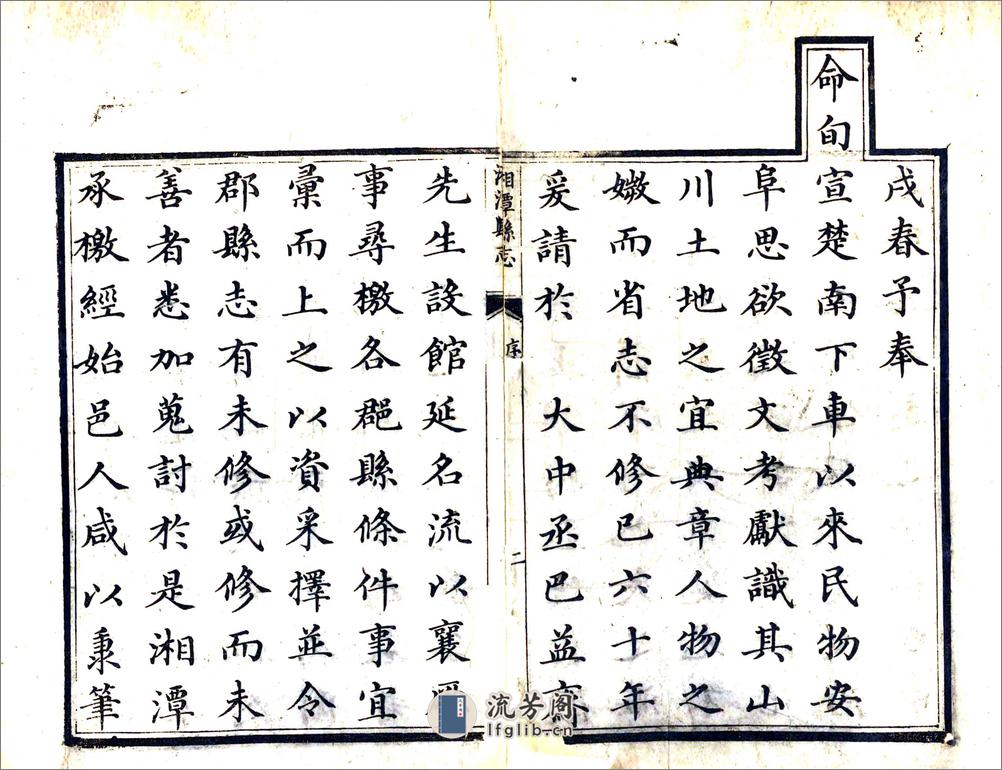 戌春予奉
命旬
宣楚南下車以來民物安
阜思欲徵文考獻識其山
川土地之宜典章人物之
媺而省志不修已六十年
爰請於 大中丞巴益齋
湘潭縣志
序
二
先生設館延名流以襄
事尋檄各郡縣條件事宜
彙而上之以資采擇並令
郡縣志有未修或修而未
善者悉加蒐討於是湘潭
承檄經始邑人咸以秉筆
流芳阁
lfglib.cn